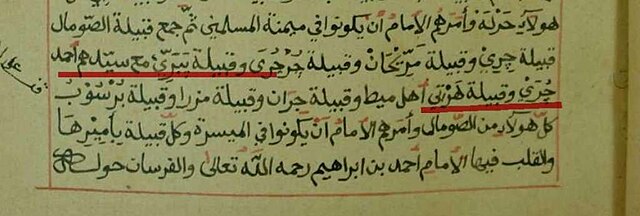 هولاد حزلة وأمرهم الإمام أن يكونوا في ميمنة المسلمين ثم جمع قبيلة الصومال
قبيلة جري وقبيلة مريحان وقبيلة جرجري وقبيلة يبري مع سيدهم أحمد
جري وقبيلة هرتي أهل ميط وقبيلة جران وقبيلة مزرا وقبيلة برسوب
كل هولاد من الصومال وأمرهم الإمام أن يكونوا في الميسرة وكل قبيلة بأميرها
والقلب فيها الإمام أحمد بن ابراهيم رحمه الله تعالى والفرسان حول